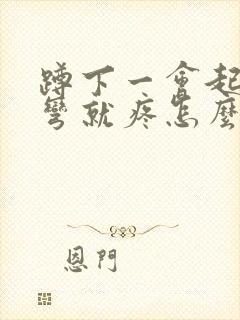 蹲下一會起
彎就疼怎麼
恩門